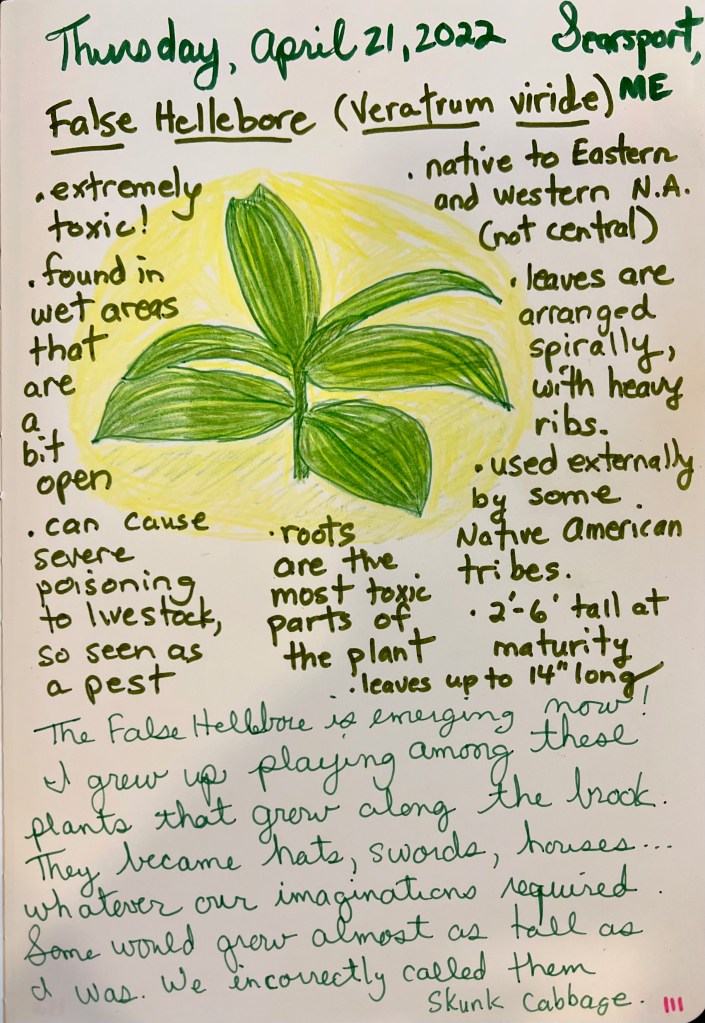 Thursday, April 21, 2022 Searsport, ME
False Hellebore (Veratrum viride)
• extremely
toxic!
• found in
wet areas
that
are
a
bit
open
• can cause
severe
poisoning
to livestock,
so seen as
a pest
• roots
are the
most toxic
parts of
the plant
• native to Eastern
and western N.A.
(not central)
• leaves are
arranged
spirally,
with heavy
ribs.
• used externally
by some
Native American
tribes.
• 2'-6' tall at
maturity
• leaves up to 14" long
The False Hellebore is emerging now!
I grew up playing among these
plants that grew along the brook.
They became hats, swords, houses...
whatever our imaginations required.
Some would grow almost as tall as
I was. We incorrectly called them
Skunk Cabbage.
111